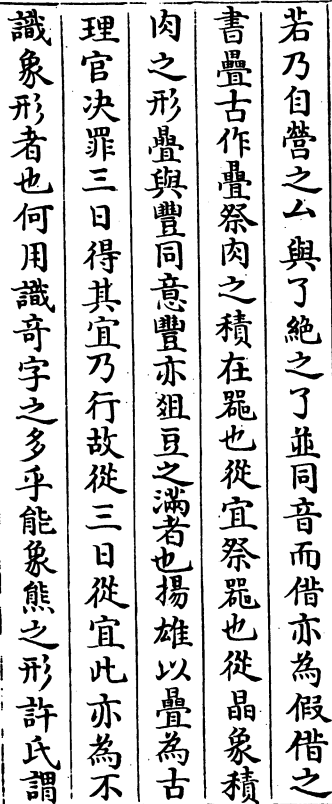 若乃自營之厶與了絶之了並同音而借亦為假借之
書疊古作疊祭肉之積在器也從宜祭器也從晶象積
肉之形疊與豐同意豐亦俎豆之滿者也揚雄以疊為古
理官决罪三日得其宜乃行故從三日從宜此亦為不
識象形者也何用識竒字之多乎能象熊之形許氏謂